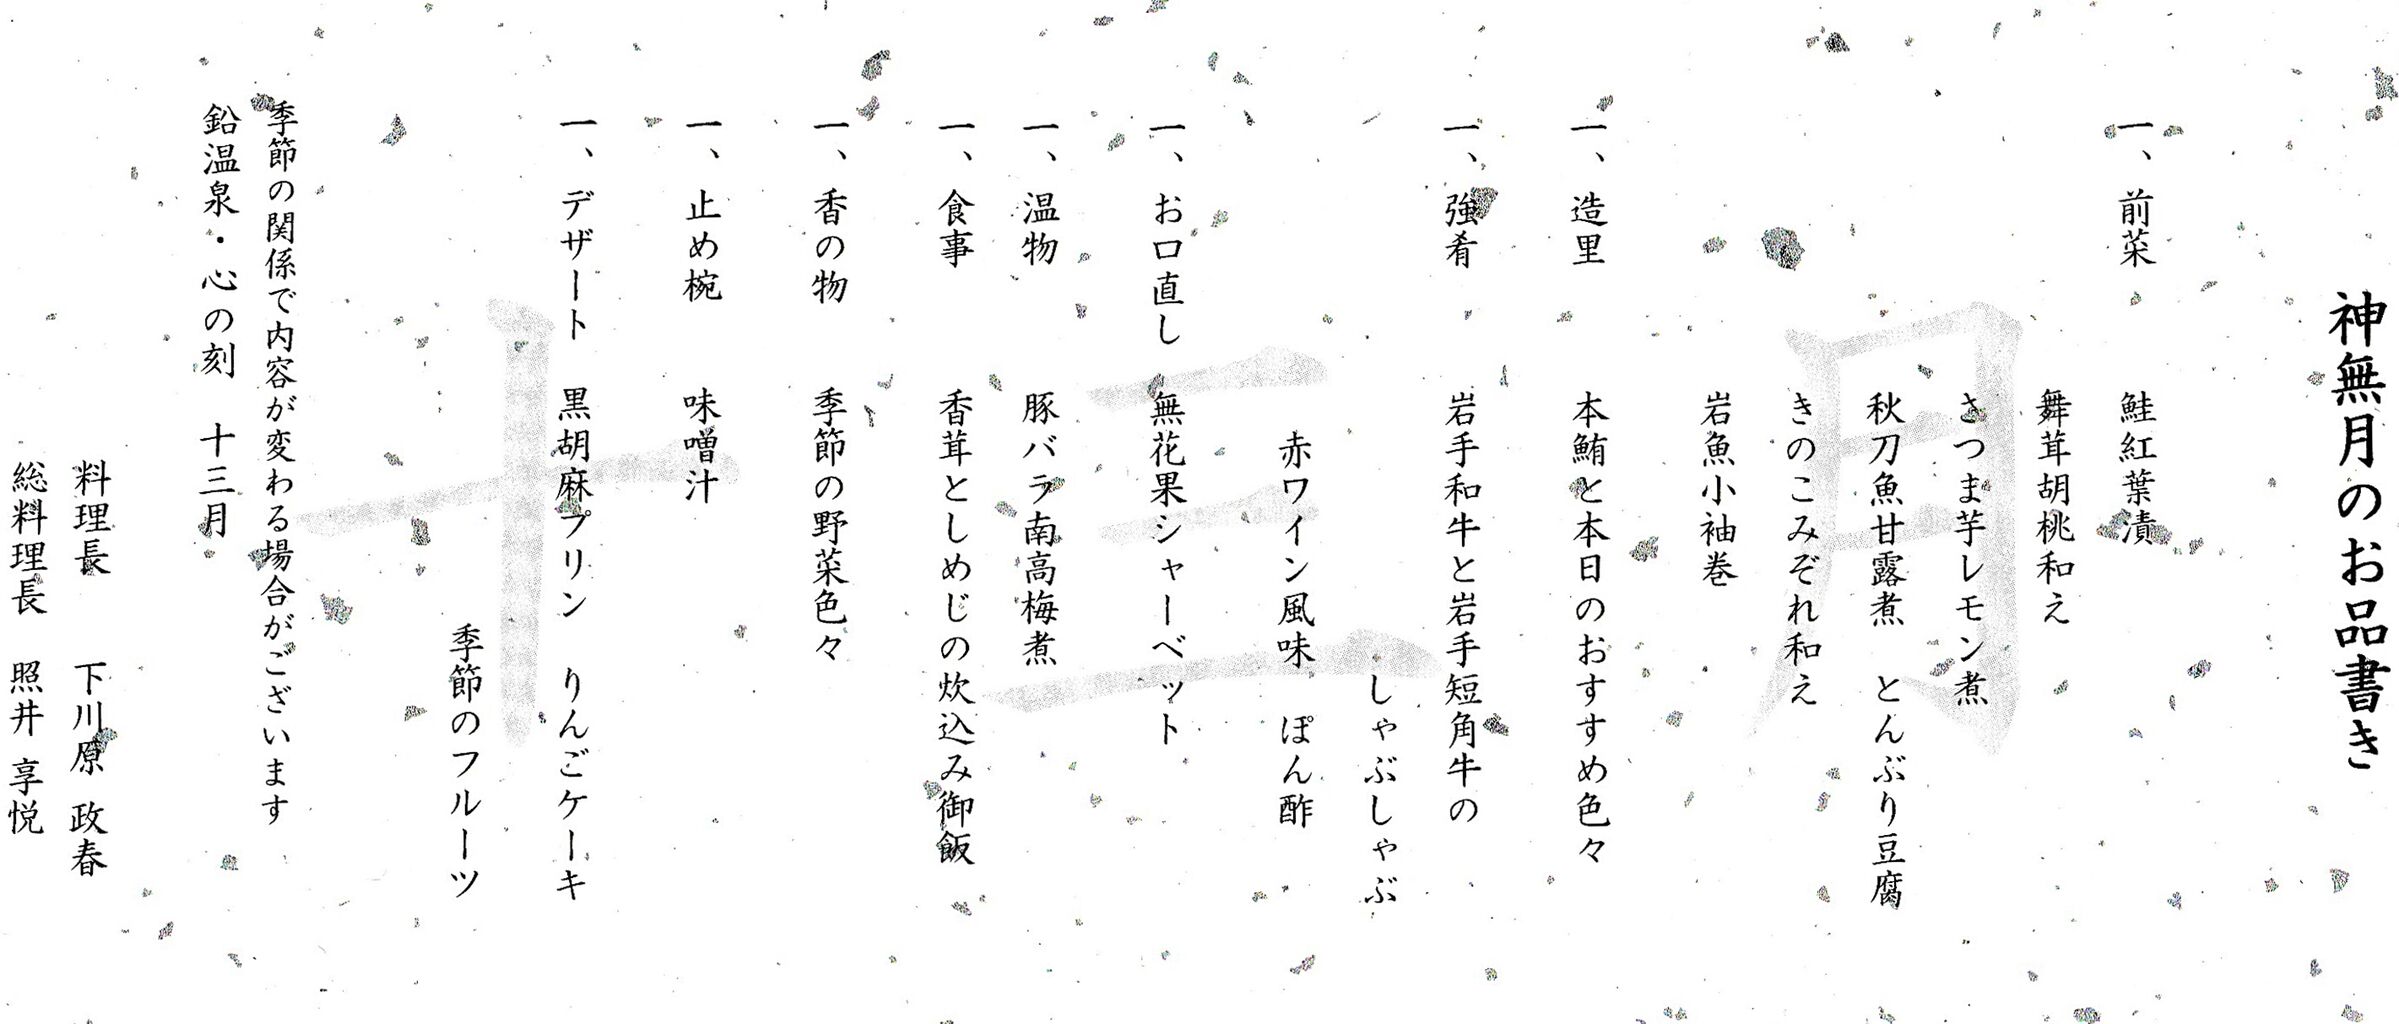 神無月のお品書き
一、前菜　鮭紅葉漬
舞茸胡桃和え
さつま芋レモン煮
秋刀魚甘露煮　とんぶり豆腐
きのこみぞれ和え
岩魚小袖巻
一、造里　本鮪と本日のおすすめ色々
一、強肴　岩手和牛と岩手短角牛の
しゃぶしゃぶ
赤ワイン風味　ぽん酢
一、お口直し　無花果シャーベット
一、温物　豚バラ南高梅煮
一、食事　香茸としめじの炊込み御飯
一、香の物　季節の野菜色々
一、止め椀　味噌汁
一、デザート　黒胡麻プリン　りんごケーキ
季節のフルーツ
季節の関係で内容が変わる場合がございます
鉛温泉・心の刻　十三月
料理長　下川原 政春
総料理長　照井 享悦
十三月